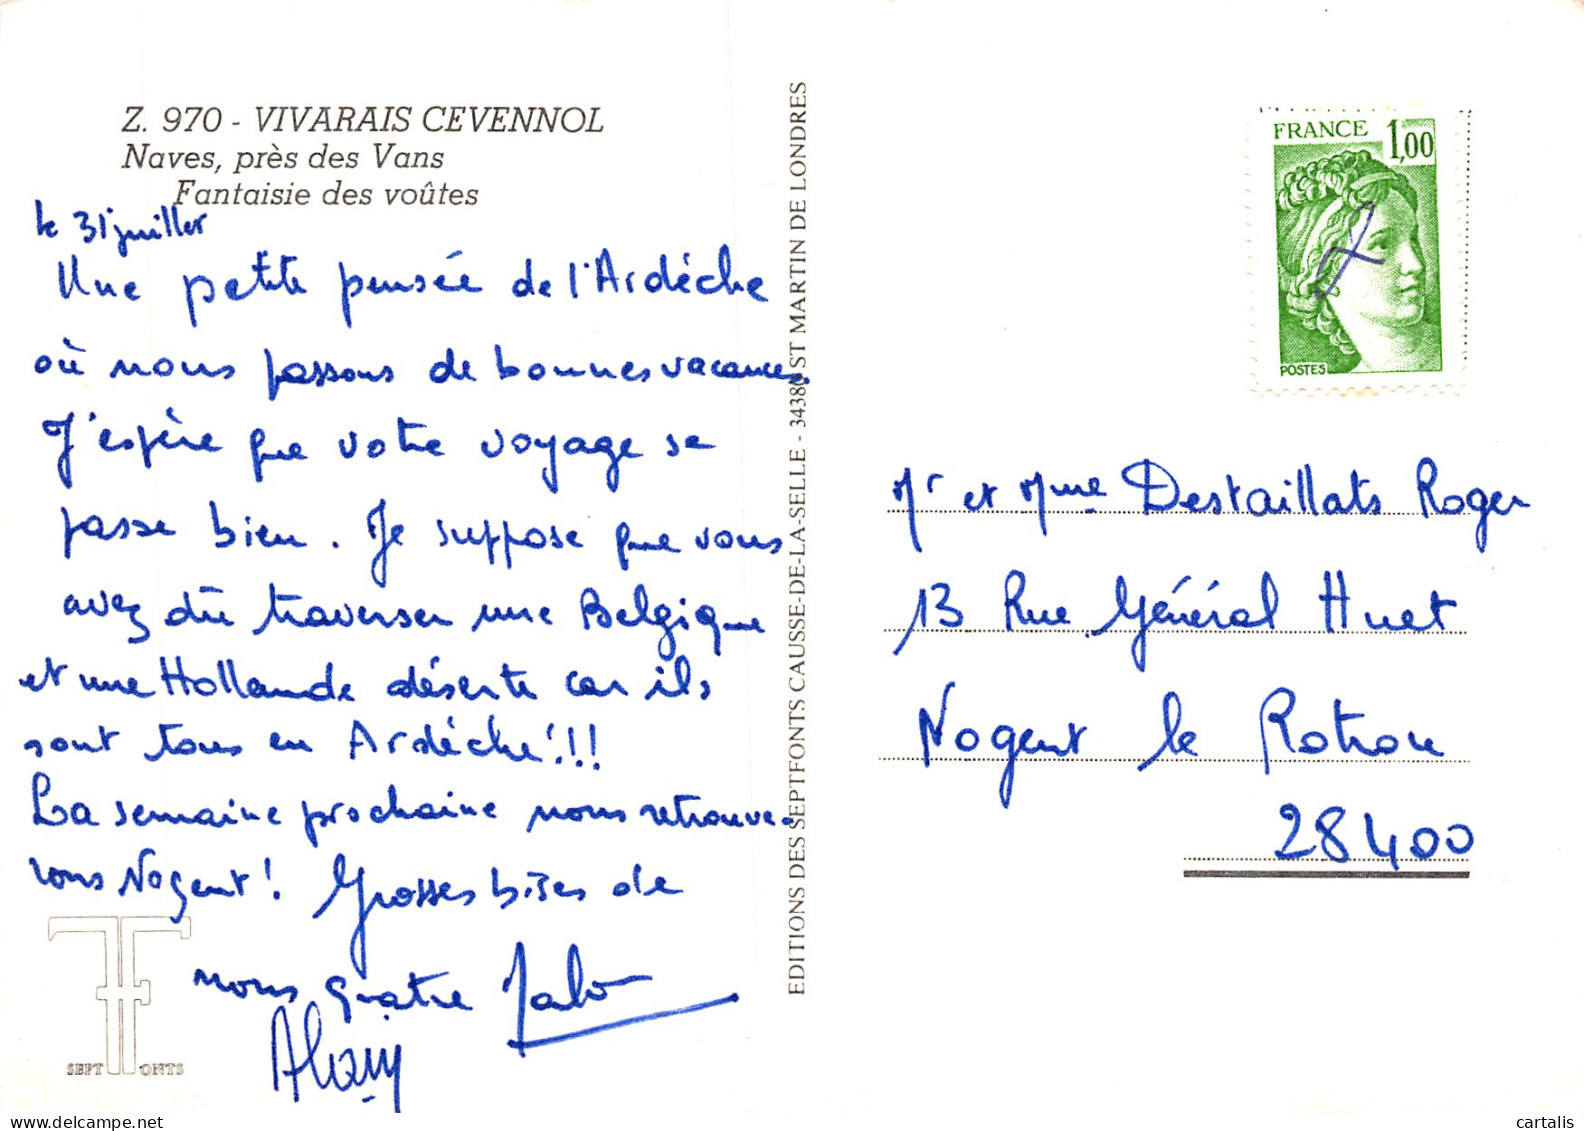 Z. 970 - VIVARAIS CEVENNOL
Naves, près des Vans
Fantaisie des voûtes
le 31 juillet
Une petite pensée de l'Ardèche
où nous passons de bonnes vacances.
J'espère que votre voyage se
passe bien. Je suppose que vous
avez dû traverser une Belgique
et une Hollande déserte car ils
sont tous en Ardèche!!!
La semaine prochaine nous retrouve-
rons Nogent! Grosses bises de
nous quatre
Alain
SEPT FONTS
EDITIONS DES SEPTFONTS CAUSSE-DE-LA-SELLE - 34380 ST MARTIN DE LONDRES
FRANCE 1,00
POSTES
Mr et Mme Destaillats Roger
13 Rue Général Huet
Nogent le Rotrou
28400
cartalis